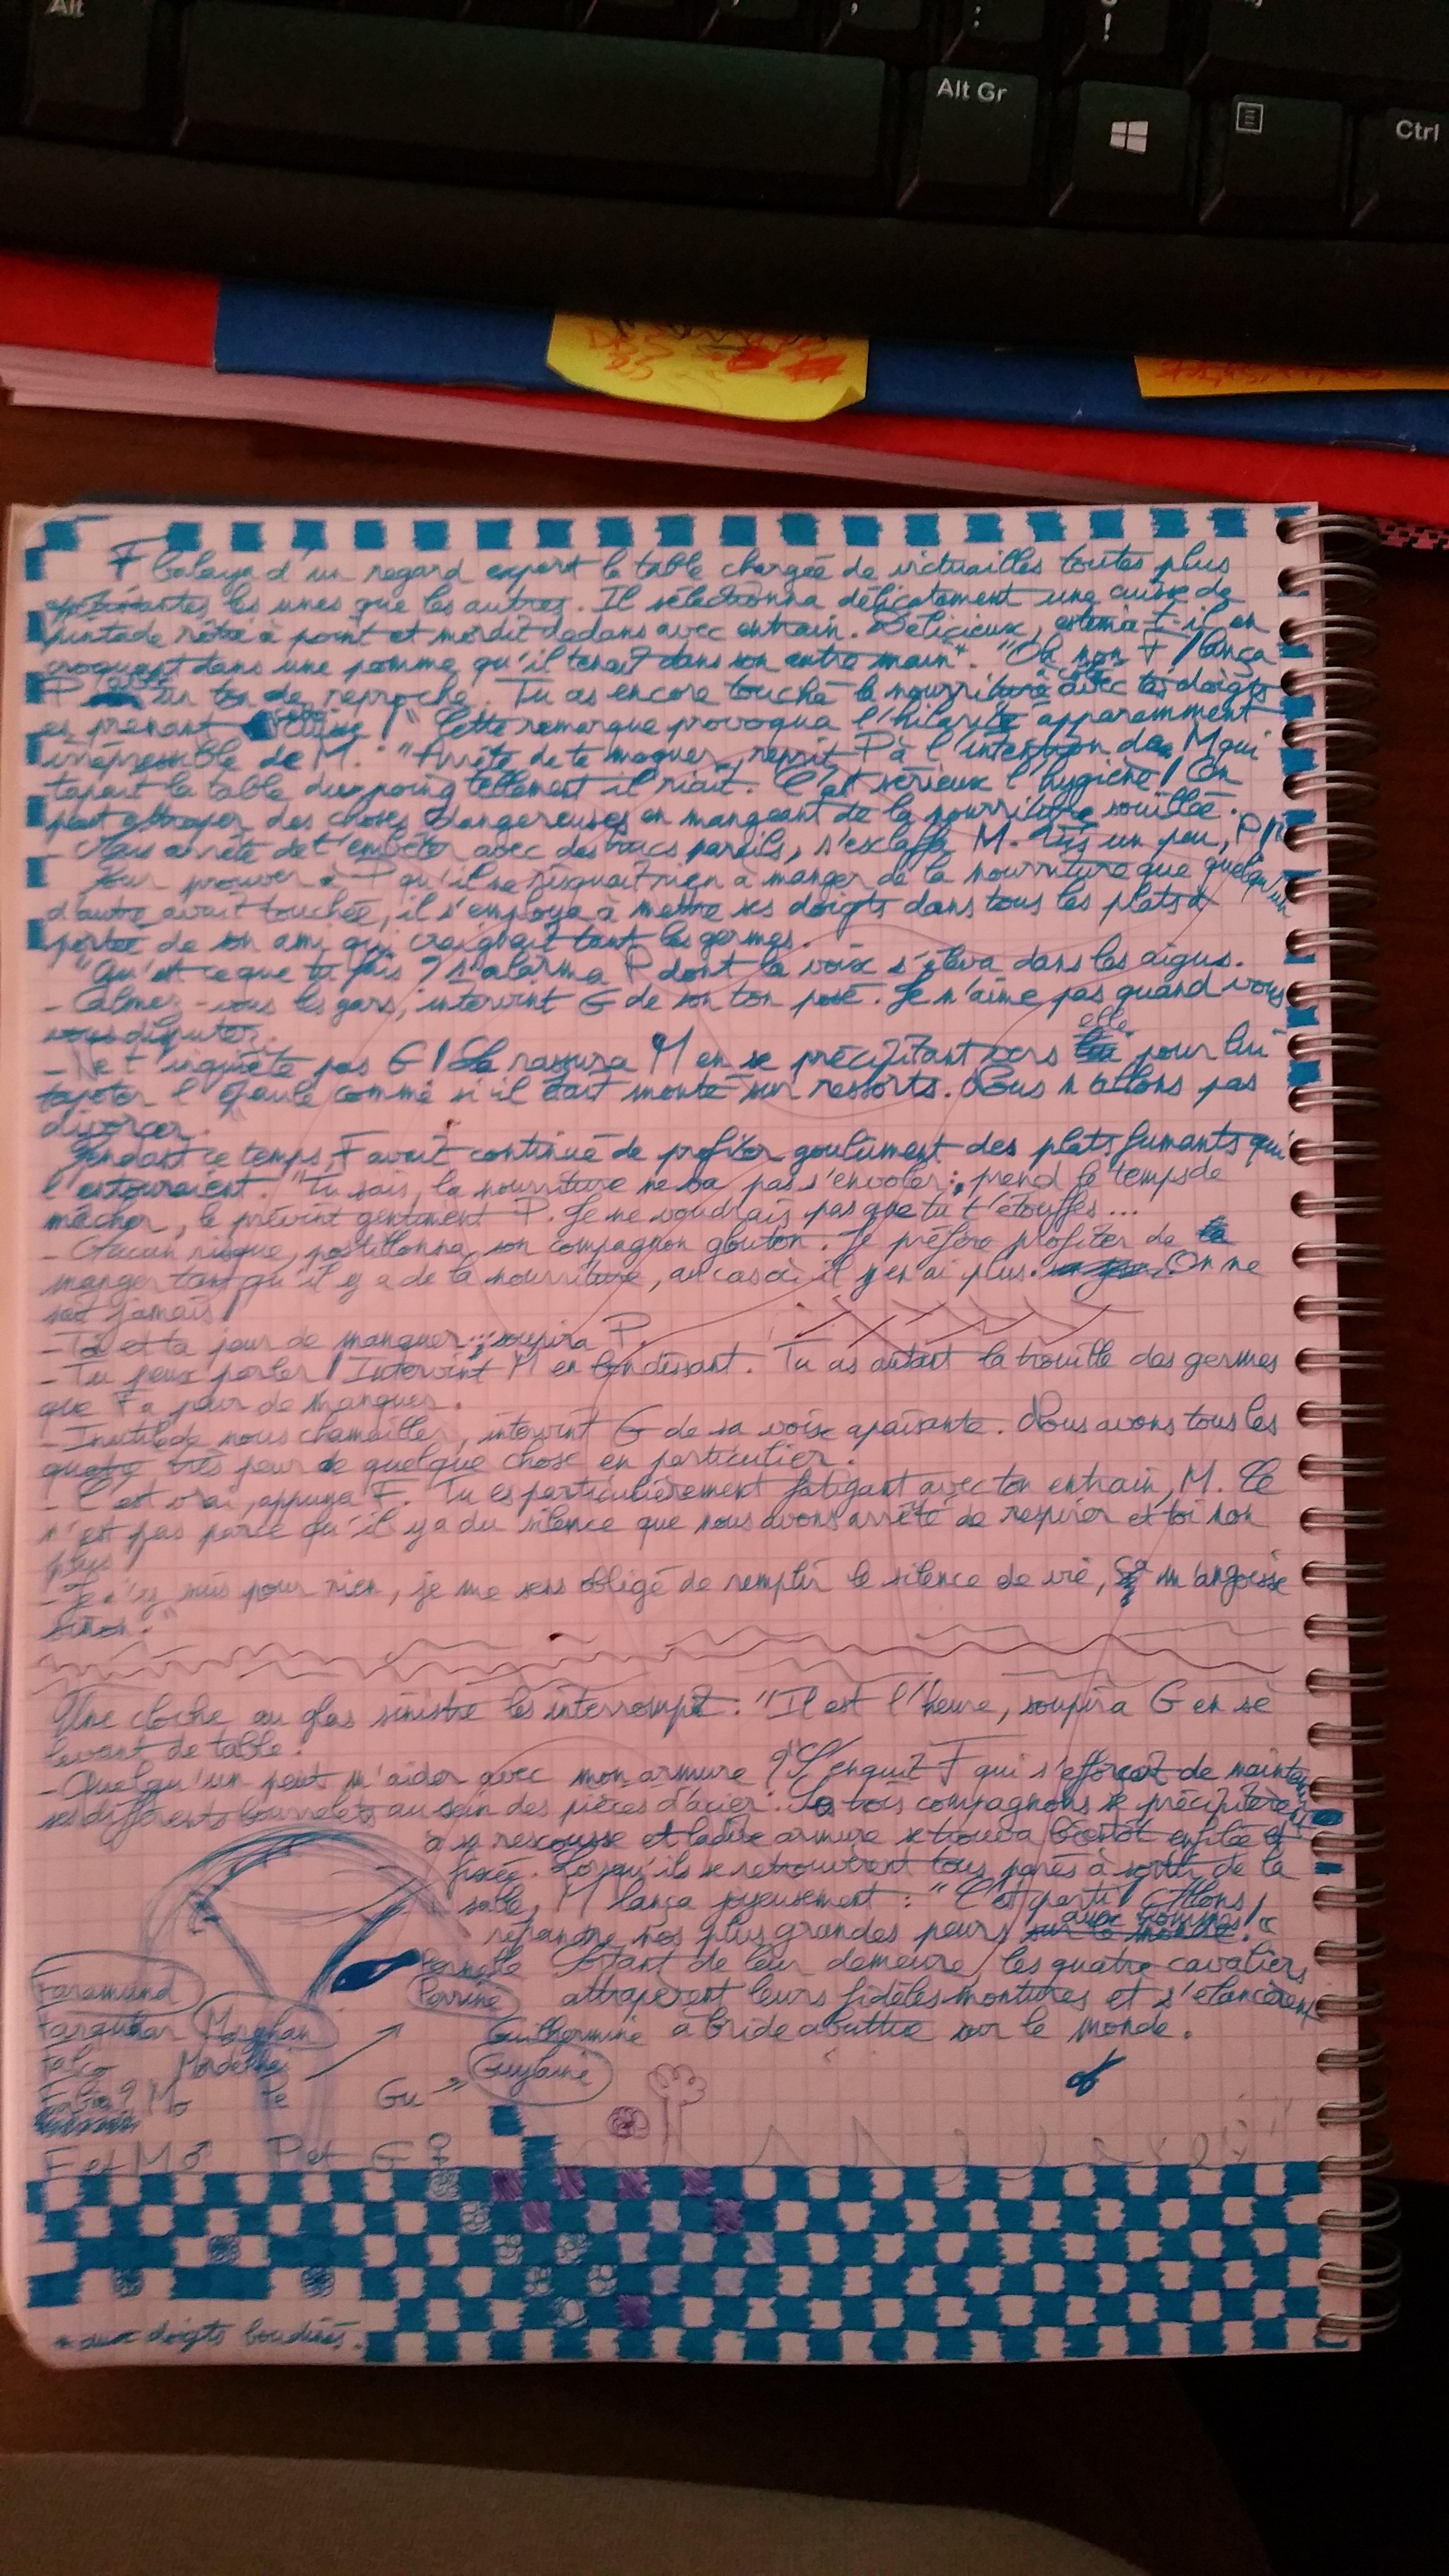 Alt
Alt Gr
Ctrl
F balaya d'un regard expert la table chargée de victuailles toutes plus
appétissantes les unes que les autres. Il sélectionna délicatement une cuisse de
pintade rôtie à point et mordit dedans avec entrain. Délicieux, estima-t-il en
croquant dans une pomme qu'il tenait dans son autre main*. "Oh non F! lança
P sur un ton de reproche. Tu as encore touché la nourriture avec tes doigts
en prenant cette cuisse!" Cette remarque provoqua l'hilarité apparemment
irrépressible de M. "Arrête de te moquer, reprit P à l'intention de M qui
tapait la table du poing tellement il riait. C'est sérieux l'hygiène! On
peut attraper des choses dangereuses en mangeant de la nourriture souillée.
- Mais arrête de t'embêter avec des trucs pareils, s'esclaffa M. Vis un peu, P!"
Pour prouver à P qu'il ne risquait rien à manger de la nourriture que quelqu'un
d'autre avait touchée, il s'employa à mettre ses doigts dans tous les plats à
portée de son ami qui craignait tant les germes.
"Qu'est ce que tu fais? s'alarma P dont la voix s'éleva dans les aigus.
- Calmez-vous les gars, intervint G de son ton posé. Je n'aime pas quand vous
vous disputez.
- Ne t'inquiète pas G! La rassura M en se précipitant vers elle pour lui
tapoter l'épaule comme si il était monté sur ressorts. Nous n'allons pas
divorcer."
Pendant ce temps, F avait continué de profiter goulûment des plats fumants qui
l'entouraient. "Tu sais, la nourriture ne va pas s'envoler, prend le temps de
mâcher, le prévint gentiment P. Je ne voudrais pas que tu t'étouffes...
- Aucun risque, postillonna son compagnon glouton. Je préfère profiter de
manger tant qu'il y a de la nourriture, au cas où il y en ai plus. On ne
sait jamais!
- Toi et ta peur de manquer... soupira P.
- Tu peux parler! Intervint M en bondissant. Tu as autant la trouille des germes
que F a peur de manquer.
- Inutile de nous chamailler, intervint G de sa voix apaisante. Nous avons tous les
quatre très peur de quelque chose en particulier.
- C'est vrai, appuya F. Tu es particulièrement fatigant avec ton entrain, M. Ce
n'est pas parce qu'il y a du silence que nous avons arrêté de respirer et toi non
plus!
- Je n'y suis pour rien, je me sens obligé de remplir le silence de vie, ça m'angoisse
sinon."
Une cloche au glas sinistre les interrompit. "Il est l'heure, soupira G en se
levant de table.
- Quelqu'un peut m'aider avec mon armure?" S'enquit F qui s'efforçait de maintenir
ses différents bourrelets au sein des pièces d'acier. Ses trois compagnons se précipitèrent
à sa rescousse et ladite armure se trouva bientôt enfilée et
fixée. Lorsqu'ils se retrouvèrent tous parés à sortir de la
salle, M lança joyeusement: "C'est parti! Allons
répandre nos plus grandes peurs aux hommes!"
Sortant de leur demeure, les quatre cavaliers
attrapèrent leurs fidèles montures et s'élancèrent
à bride abattue sur le monde.
Faramund
Farquhar Morghan
Falco
Mo
Pe
Gu
Pernelle
Perrine
Guillermine
Guylaine
F et M ♂ P et G ♀
* aux doigts boudinés.